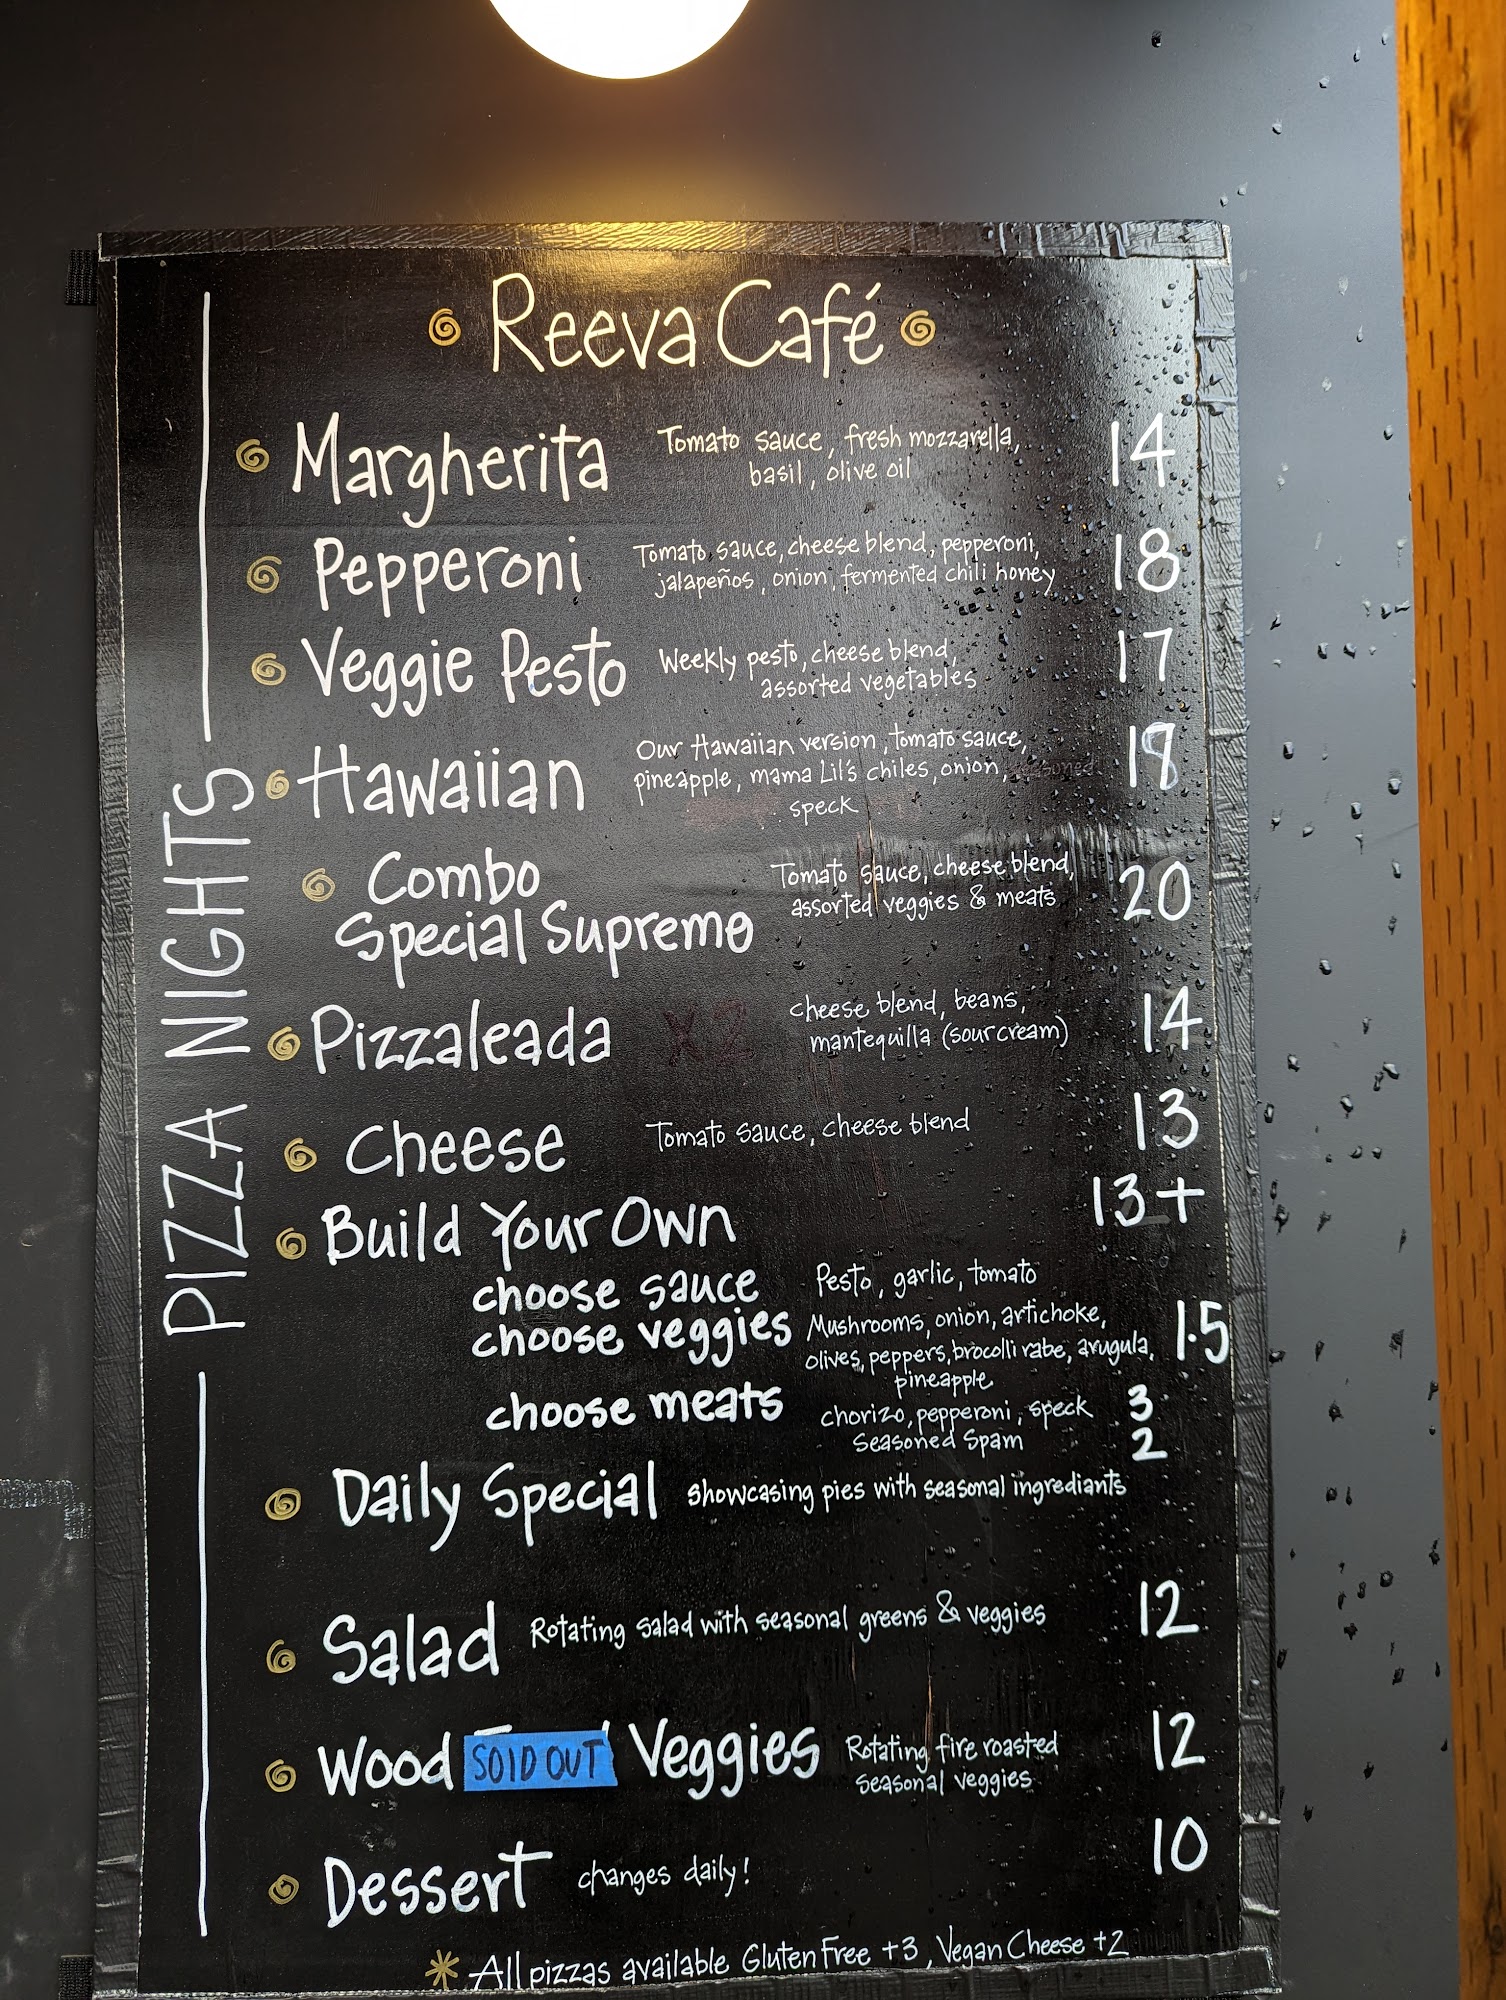 Reeva Café
PIZZA NIGHTS
Margherita
Tomato sauce, fresh mozzarella,
basil, olive oil
14
Pepperoni
Tomato sauce, cheese blend, pepperoni,
jalapeños, onion, fermented chili honey
18
Veggie Pesto
Weekly pesto, cheese blend,
assorted vegetables
17
Hawaiian
Our Hawaiian version, tomato sauce,
pineapple, mama Lil's chiles, onion,
speck
18
Combo
Special Supreme
Tomato sauce, cheese blend,
assorted veggies & meats
20
Pizzaleada
x2
cheese blend, beans,
mantequilla (sour cream)
14
Cheese
Tomato sauce, cheese blend
13
Build Your Own
13+
choose sauce
Pesto, garlic, tomato
choose veggies
Mushrooms, onion, artichoke,
olives, peppers, brocolli rabe, arugula,
pineapple
1.5
choose meats
chorizo, pepperoni, speck
3
Seasoned Spam
2
Daily Special
showcasing pies with seasonal ingrediants
Salad
Rotating salad with seasonal greens & veggies
12
Wood SOLD OUT Veggies
Rotating fire roasted
seasonal veggies
12
Dessert
changes daily!
10
* All pizzas available Gluten Free +3, Vegan Cheese +2